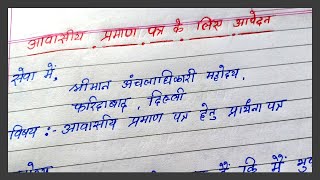 आवासीय प्रमाण पत्र के लिए आवेदन
सेवा में,
श्रीमान अंचलाधिकारी महोदय,
फरिदाबाद, दिल्ली
विषय :- आवासीय प्रमाण पत्र हेतु प्रार्थना पत्र
कि मैं